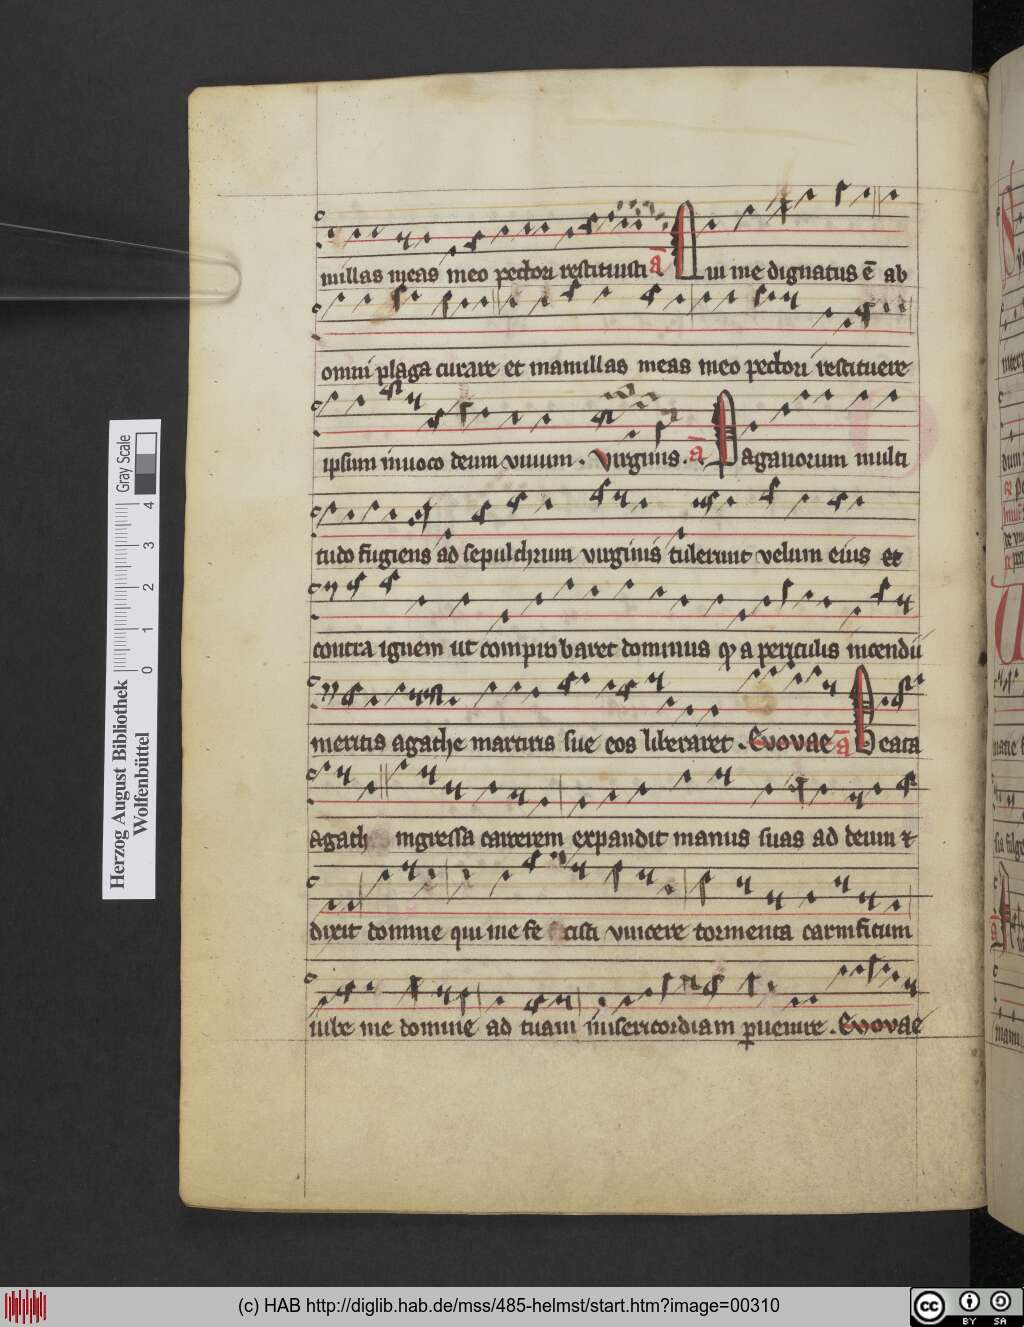 millas meas meo pectori restituisti a̅ Qui me dignatus ē ab
omni plaga curare et mamillas meas meo pectori restituere
ipsum inuoco deum viuum . Virginis . a̅ Paganorum multi
tudo fugiens ad sepulchrum virginis tulerunt velum eius et
contra ignem ut comprobaret dominus a periculis incendii
meritis agathe martiris sue eos liberaret . Evovae a̅ Beata
agath ingressa carcerem expandit manus suas ad deum et
dixit domine qui me fe cisti vincere tormenta carnificum
iube me domine ad tuam misericordiam peruenire . Evovae
Herzog August Bibliothek
Wolfenbüttel
Gray Scale
0 1 2 3 4
(c) HAB http://diglib.hab.de/mss/485-helmst/start.htm?image=00310
cc BY SA